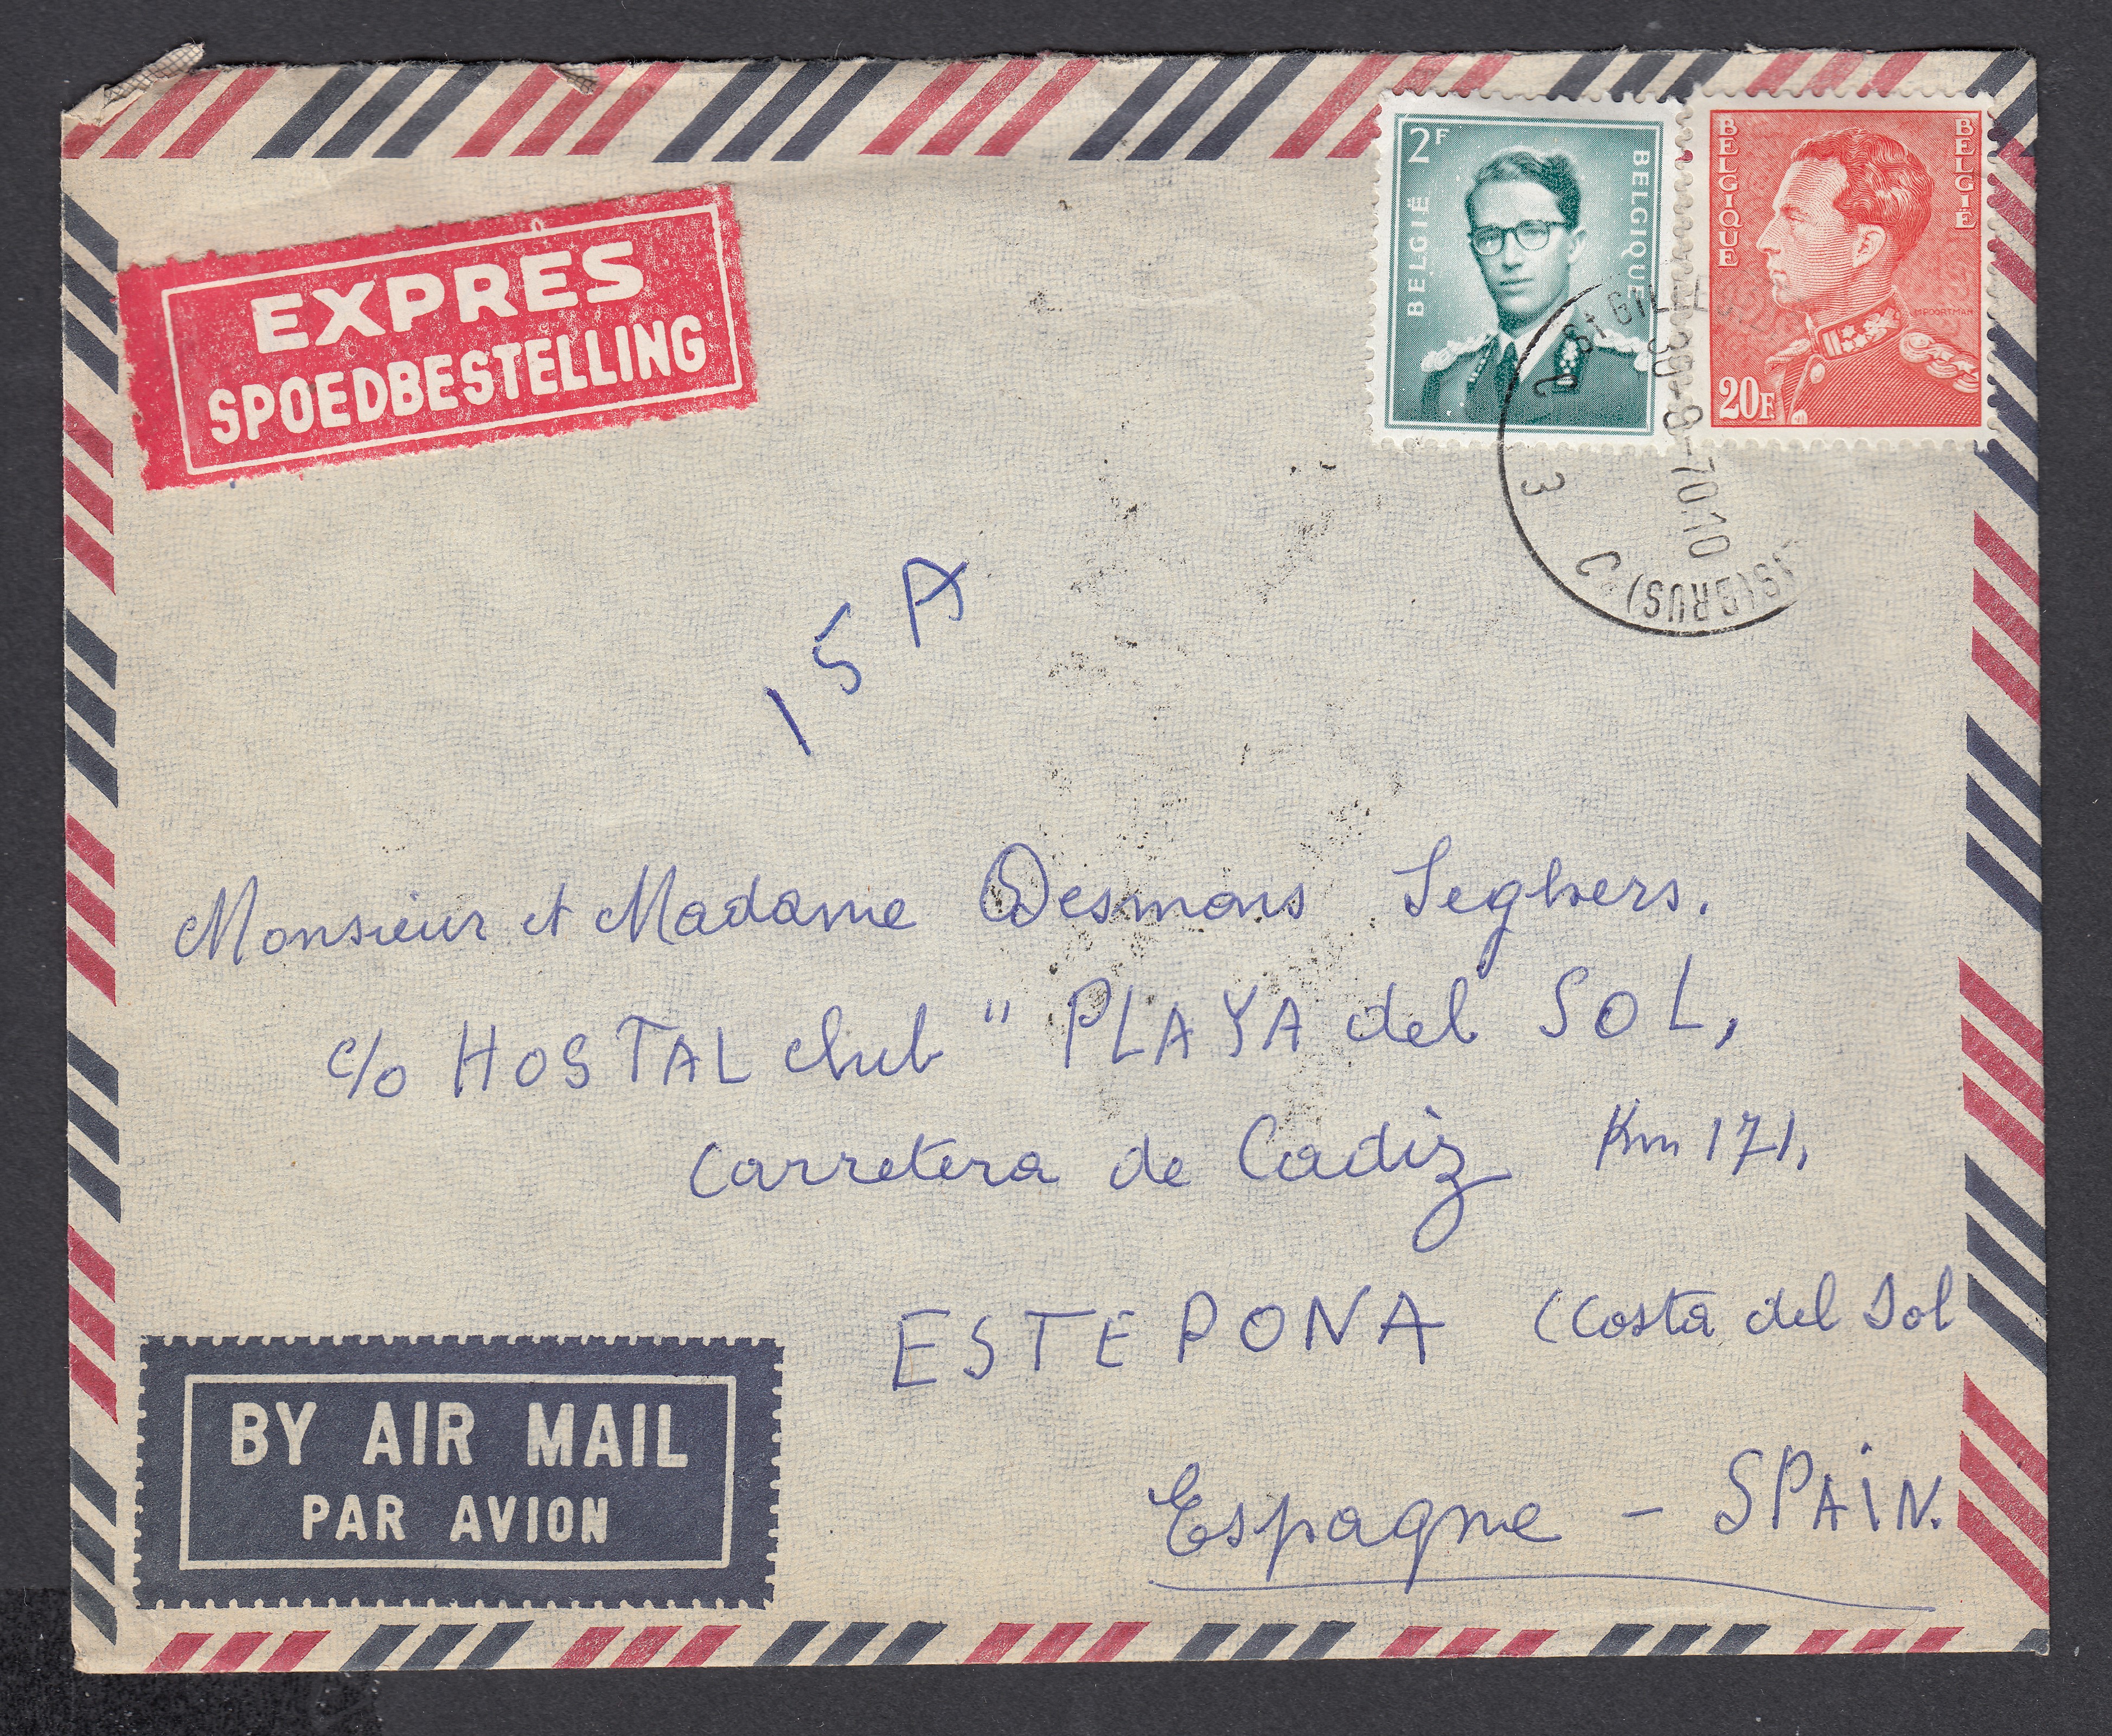 EXPRES
SPOEDBESTELLING
2F
BELGIË
BELGIQUE
BELGIQUE
BELGIË
M·POORTMAN
20F
St GILLES
30-9-70.10
(BRUS)
C
3
C
15A
Monsieur et Madame Desmons Seghers.
c/o HOSTAL club " PLAYA del SOL,
Carretera de Cadiz Km 171.
ESTEPONA (Costa del Sol
Espagne - SPAIN.
BY AIR MAIL
PAR AVION